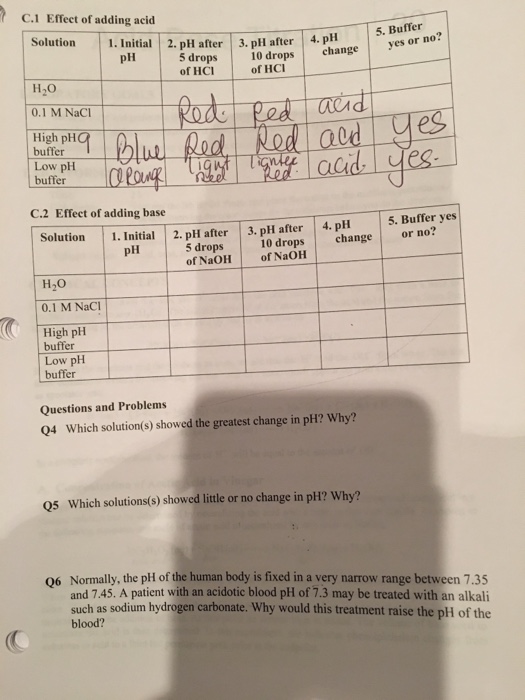 C.1 Effect of adding acid
Solution 1. Initial pH 2. pH after 5 drops of HCl 3. pH after 10 drops of HCl 4. pH change 5. Buffer yes or no?
H₂O
0.1 M NaCl Red Red acid
High pH 9 buffer Blue Red Red acid yes
Low pH buffer Orange light Red lighter Red. acid. yes.
C.2 Effect of adding base
Solution 1. Initial pH 2. pH after 5 drops of NaOH 3. pH after 10 drops of NaOH 4. pH change 5. Buffer yes or no?
H₂O
0.1 M NaCl
High pH buffer
Low pH buffer
Questions and Problems
Q4 Which solution(s) showed the greatest change in pH? Why?
Q5 Which solutions(s) showed little or no change in pH? Why?
Q6 Normally, the pH of the human body is fixed in a very narrow range between 7.35
and 7.45. A patient with an acidotic blood pH of 7.3 may be treated with an alkali
such as sodium hydrogen carbonate. Why would this treatment raise the pH of the
blood?